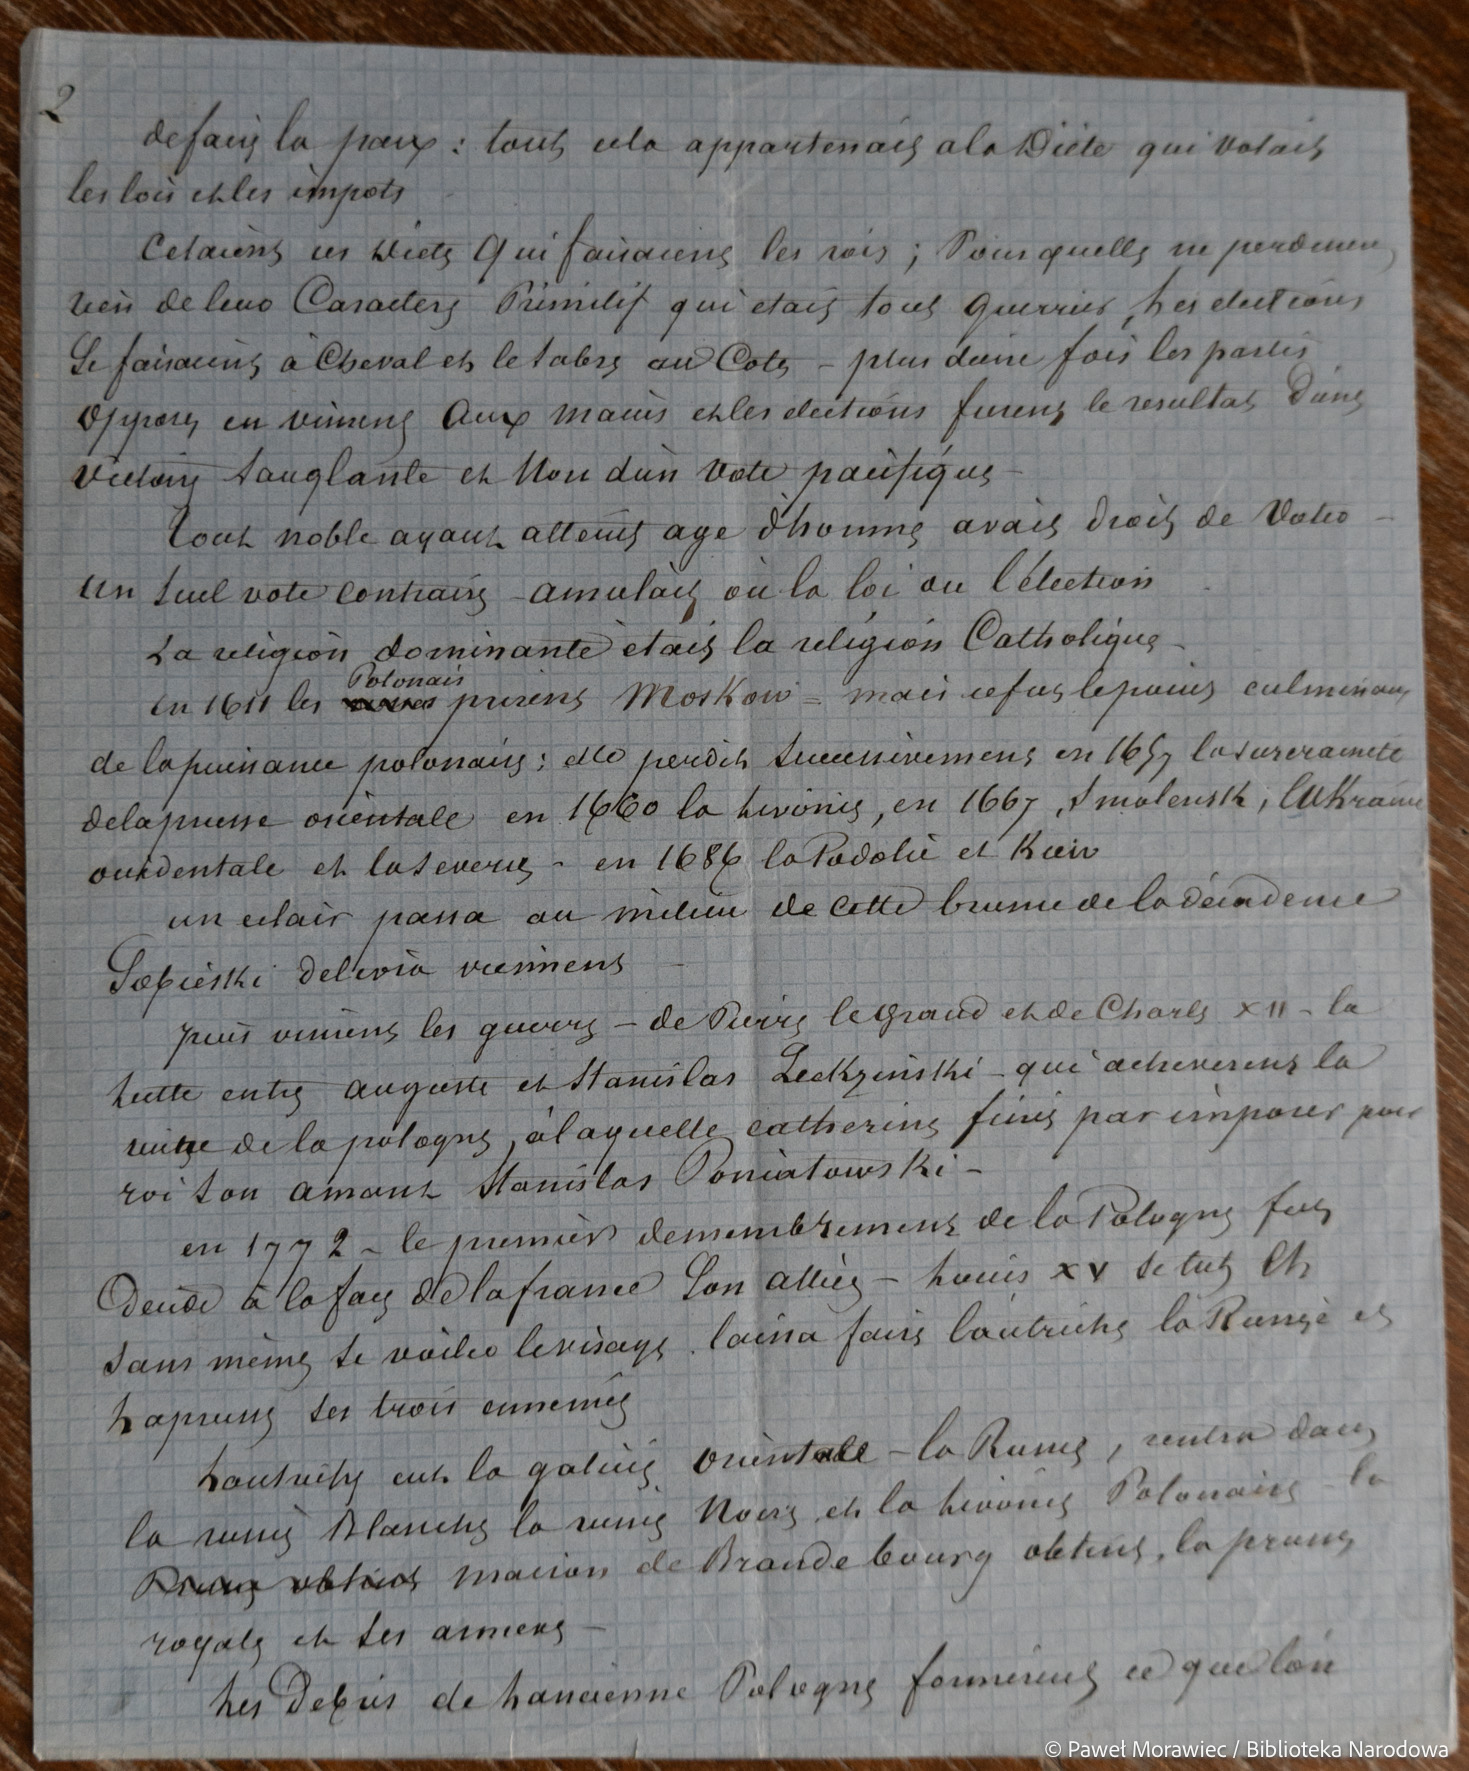 2
de faire la paix : tout cela appartenait a la Diete qui votait
les lois et les impots
Cetaient ces Diets Qui faisaient les rois ; Pour quelles ne perdirent
rien de leur Caractere Primitif qui etait tout guerrier, Les elections
Se faisaient à Cheval et le sabre au Coté – plus dune fois les partis
opposes en vinrent Aux mains et les elections furent le resultat Dune
Victoire sanglante et Non dun Vote pacifique –
Tout noble ayant atteint age d'homme avait droit de Voter –
Un seul vote contraire – annulait ou la loi ou l'élection
La religion dominante etait la religion Catholique –
en 1611 les Polonais prirent Moskow = mais ce fut le point culminant
de la puissance polonaise : elle perdit successivement en 1657 la suzeraineté
de la prusse orientale en 1660 la Livonie, en 1667, Smolensk, l'Ukraine
occidentale et la severie – en 1686 la Podolie et Kiew
un eclair passa au milieu de cette brume de la décadence
Sobieski delivra vienne
puis vinrent les guerres – de Pierre le grand et de Charles XII – la
Lutte entre auguste et Stanislas Leckzinski – qui acheverent la
ruine de la pologne, à laquelle catherine finit par imposer pour
roi son amant Stanislas Poniatowski –
en 1772 – le premier demembrement de la Pologne fut
Décidé à la face de la france Son alliée – Louis XV se tut Et
sans même se voiler le visage. laissa faire l'autriche la Russie et
La prusse ses trois ennemies
Lautriche eut la galicie orientale – la Russie, rentra dans
la russie Blanche la russie Noire et la Livonie Polonaise – la
Prusse obtint maison de Brandebourg obtint, la prusse
royale et ses annexes –
Les Debris de Lancienne Pologne formerent ce que l'on
© Paweł Morawiec / Biblioteka Narodowa